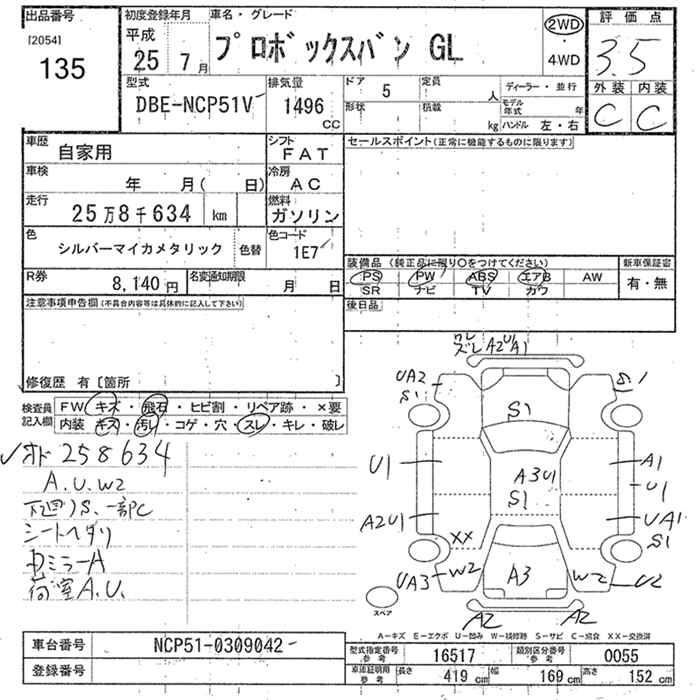 出品番号
[2054]
135
初度登録年月
平成
25年 7月
車名・グレード
プロボックスバン GL
2WD
・
4WD
評価点
3.5
外装 内装
C C
型式
DBE-NCP51V
排気量
1496
CC
ドア 5
定員 人
形状
積載 kg
ディーラー・並行
モデル年式 年
ハンドル 左・右
車歴
自家用
シフト
FAT
車検
年 月( 日)
冷房
AC
走行
25万8千634 km
燃料
ガソリン
色
シルバーマイカメタリック
色替
色コード
1E7
R券
8,140円
名変通知期限
月 日
セールスポイント(正常に機能するものに限ります)
装備品(純正品に限り○をつけてください)
新車保証書
PS PW ABS エアB AW
SR ナビ TV カワ
有・無
後日品
注意事項申告欄(不具合内容等は具体的に記入して下さい)
修復歴 有[箇所 ]
検査員記入欄
FW キズ・飛石・ヒビ割・リペア跡・×要
内装 キズ・汚レ・コゲ・穴・スレ・キレ・破レ
✓オド 258634
A.U.W2
下廻りS.一部C
シートヘタリ
Rミラー A
荷室A.U.
ズレ A2U1 A1
UA2
S1
S1
S1
U1
A1
U1
A3U1
S1
A2U1
UA1
S1
XX
UA3
W2
A3
W2
U2
A2
A2
スペア
A-キズ E-エクボ U-凹み W-補修跡 S-サビ C-腐食 XX-交換済
車台番号
NCP51-0309042
登録番号
型式指定番号参考
16517
類別区分番号参考
0055
車庫証明用参考
長さ 419 cm
幅 169 cm
高さ 152 cm